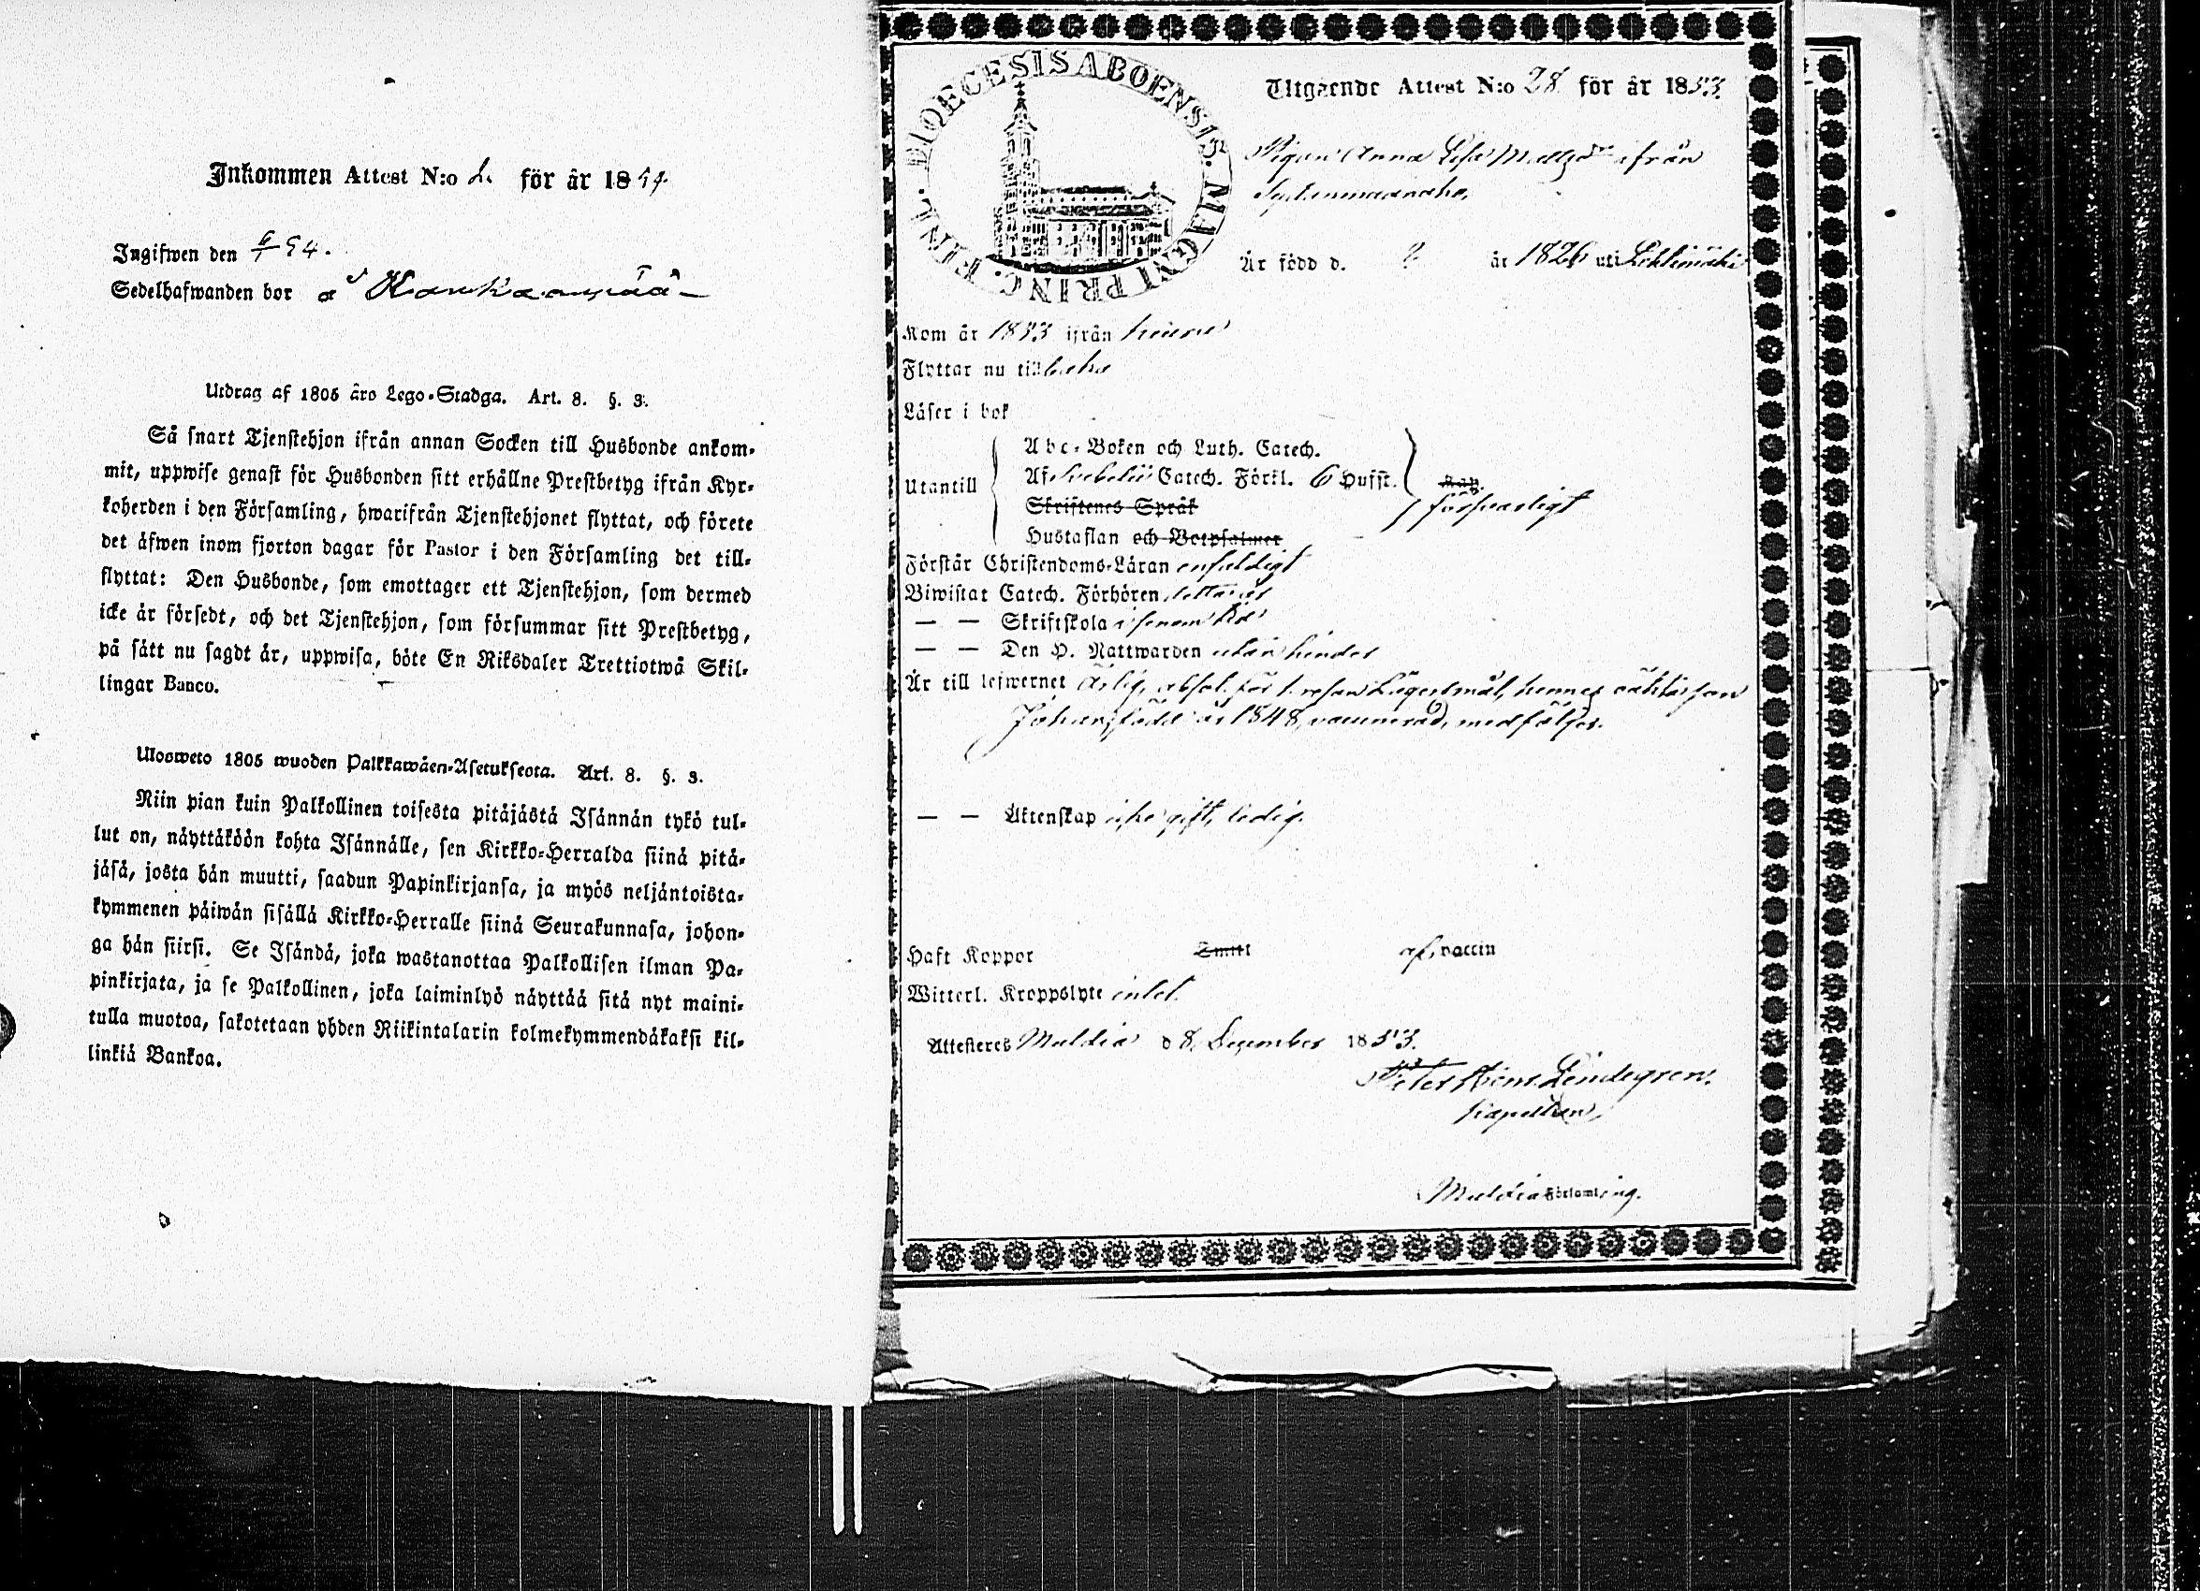 Inkommen Attest N:o 2. för år 1854.
Ingifwen den 6/1 54.
Sedelhafwanden bor å Kankaanpää
Utdrag af 1805 års Lego-Stadga. Art. 8. §. 3.
Så snart Tjenstehjon ifrån annan Socken till Husbonde ankom-
mit, uppwise genast för Husbonden sitt erhållne Prestbetyg ifrån Kyr-
koherden i den Församling, hwarifrån Tjenstehjonet flyttat, och förete
det äfwen inom fjorton dagar för Pastor i den Församling det till-
flyttat: Den Husbonde, som emottager ett Tjenstehjon, som dermed
icke är försedt, och det Tjenstehjon, som försummar sitt Prestbetyg,
på sätt nu sagdt är, uppwisa, böte En Riksdaler Trettiotwå Skil-
lingar Banco.
Ulosweto 1805 wuoden Palkkawäen-Asetuksesta. Art. 8. §. 3.
Niin pian kuin Palkollinen toisesta pitäjästä Isännän tykö tul-
lut on, näyttäköön kohta Isännälle, sen Kirkko-Herralda siinä pitä-
jäsä, josta hän muutti, saadun Papinkirjansa, ja myös neljäntoista-
kymmenen päiwän sisällä Kirkko-Herralle siinä Seurakunnasa, johon-
ga hän siirsi. Se Isändä, joka wastanottaa Palkollisen ilman Pa-
pinkirjata, ja se Palkollinen, joka laiminlyö näyttää sitä nyt maini-
tulla muotoa, sakotetaan yhden Riikintalarin kolmekymmendäkaksi kil-
linkiä Bankoa.
DIOECESIS ABOENSIS. MAGNI PRINC. FINL.
Utgående Attest N:o 28 för år 1853.
Pigan Anna Lisa Mattsdr ifrån
Är född d. ? år 1826 uti Lehtimäki
Kom år 1853 ifrån
Flyttar nu tillbaka
Läser i bok
Abc-Boken och Luth. Catech.
Utantill Af Svebelii Catech. Förkl. 6 Hufst. Kap. försvarligt
Skriftenes Språk
Hustaflan och Botpsalmer
Förstår Christendoms-Läran enfaldigt
Biwistat Catech. Förhören detta år
— — Skriftskola i senare tid
— — Den H. Nattwarden utan hinder
Är till lefwernet Ärlig, absol. för 1. resan Lägersmål, hennes oäkta son
Johan, född år 1848, vaccinerad, medföljer.
— — Äktenskap icke gift, ledig.
Haft Koppor Smitt af vaccin
Witterl. Kroppslyte intet.
Attesteres Muldia d 8. December 1853.
Peter Lindegren.
Kapellan,
Muldia Församling.